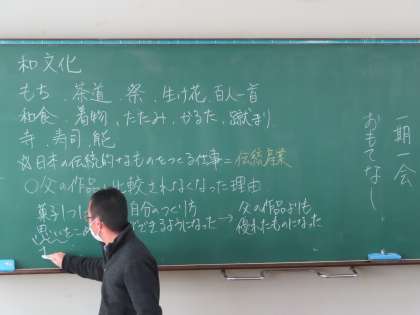 和文化
もち、茶道、祭、生け花、百人一首
和食、着物、たたみ、かるた、蹴まり
寺、寿司、能
日本の伝統的なものをつくる仕事=伝統産業
○父の作品と比較されなくなった理由
菓子 自分のつくり方
できるようになった→父の作品よりも
優れたものになった
一期一会
おもてなし